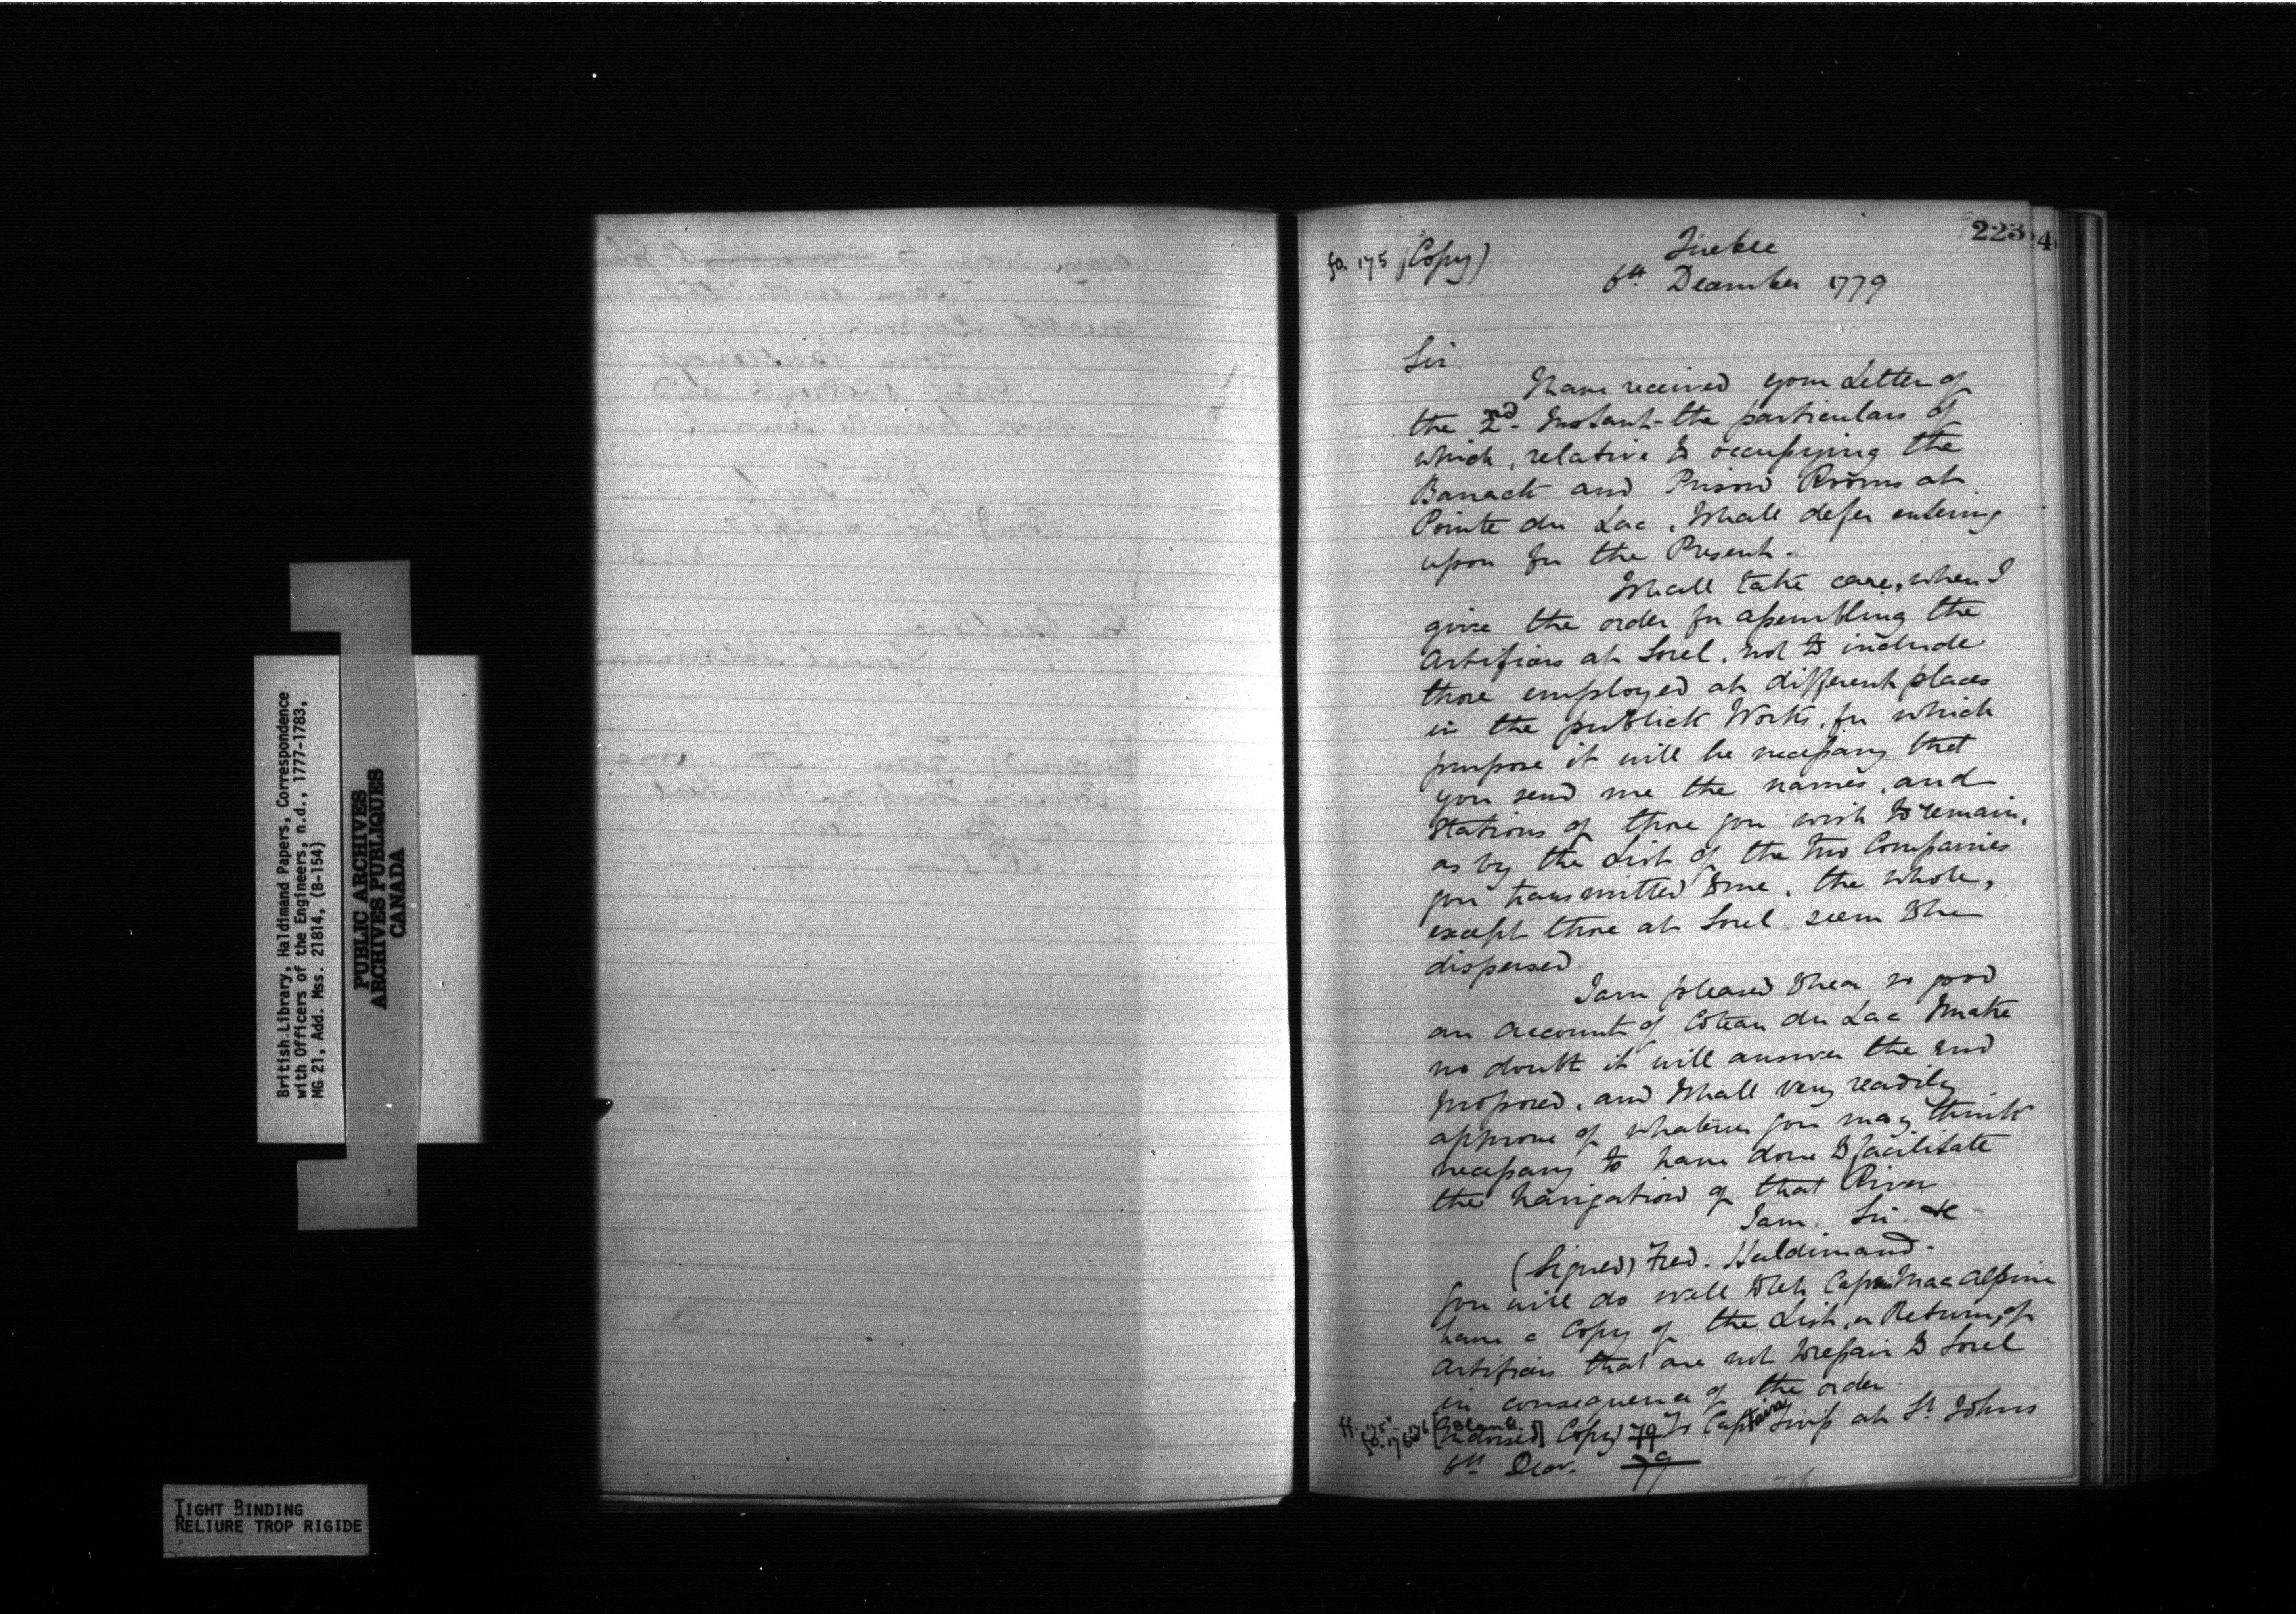 British Library, Haldimand Papers, Correspondence
with Officers of the Engineers, n.d., 1777-1783,
MG 21, Add. Mss. 21814, (B-154)
PUBLIC ARCHIVES
ARCHIVES PUBLIQUES
CANADA
TIGHT BINDING
RELIURE TROP RIGIDE
223
fo. 175 (Copy)
Quebec
6th December 1779
Sir
I have received your Letter of
the 2nd Instant - the particulars of
which, relative to occupying the
Barrack and Prison Rooms at
Pointe du Lac, I shall defer entering
upon for the Present.
I shall take care, when I
give the order for assembling the
Artificers at Sorel, not to include
those employed at different places
in the publick Works, for which
purpose it will be necessary that
you send me the names, and
Stations of those you wish to remain,
as by the List of the two Companies
you transmitted to me, the whole,
except those at Sorel seem to be
dispersed
I am pleased to hear so good
an account of Coteau du Lac I make
no doubt it will answer the End
proposed, and I shall very readily
approve of whatever you may think
necessary to have done to facilitate
the Navigation of that River
I am Sir &c
(Signed) Fred. Haldimand.
You will do well to let Captain Mac Alpine
have a Copy of the List, or Return, of
Artificers that are not to repair to Sorel
in consequence of the order.
ff. 175v-176 [Blank.
fo. 176v [Endorsed] Copy 79 To Captain Twiss at St Johns
6th Decr. 79